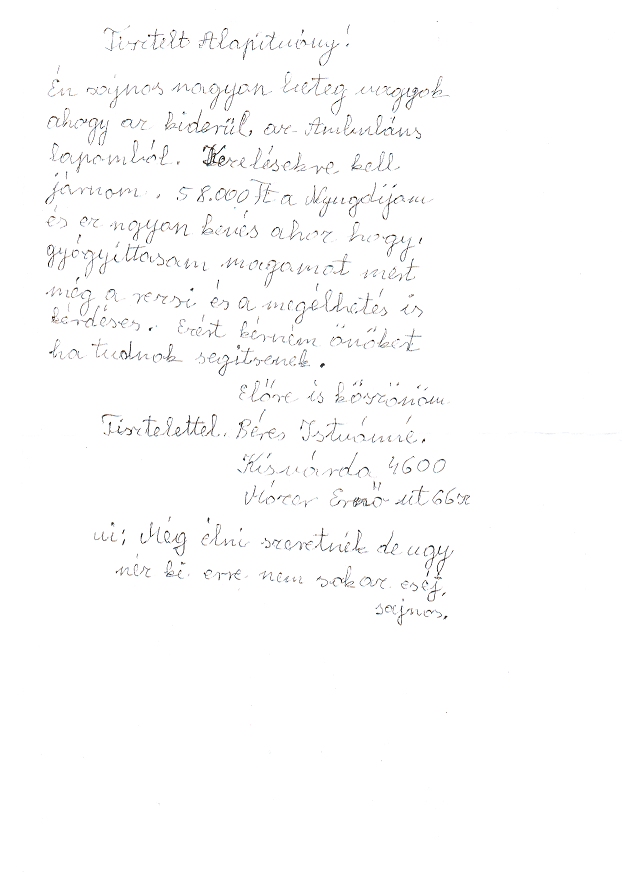 Tisztelt Alapítvány!
Én sajnos nagyon beteg vagyok
ahogy az kiderül, az Ambuláns
lapomból. Kezelésekre kell
járnom. 58.000 Ft a Nyugdíjam
és ez ngyan kevés ahoz hogy,
gyógyíttasam magamat mert
még a rezsi és a megélhetés is
kérdéses. Ezért kérném önöket
ha tudnok segitsenek.
Előre is köszönöm
Tisztelettel. Béres Istvánné.
Kisvárda 4600
Mózer Ernő ut 66sz
ui; Még élni szeretnék de ugy
néz ki erre nem sok az eséj,
sajnos.